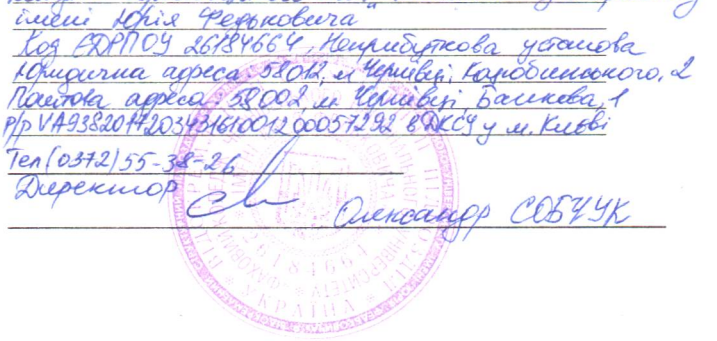 імені Юрія Федьковича
Код ЄДРПОУ 26184664, Неприбуткова установа
Юридична адреса: 58012, м Чернівці, Коцюбинського, 2
Поштова адреса: 58002, м Чернівці, Банкова, 1
Р/р UA938201720343161001200057292 в ДКСУ у м. Києві
Тел (0372) 55-38-26
Директор
Олександр СОБЧУК
УКРАЇНА